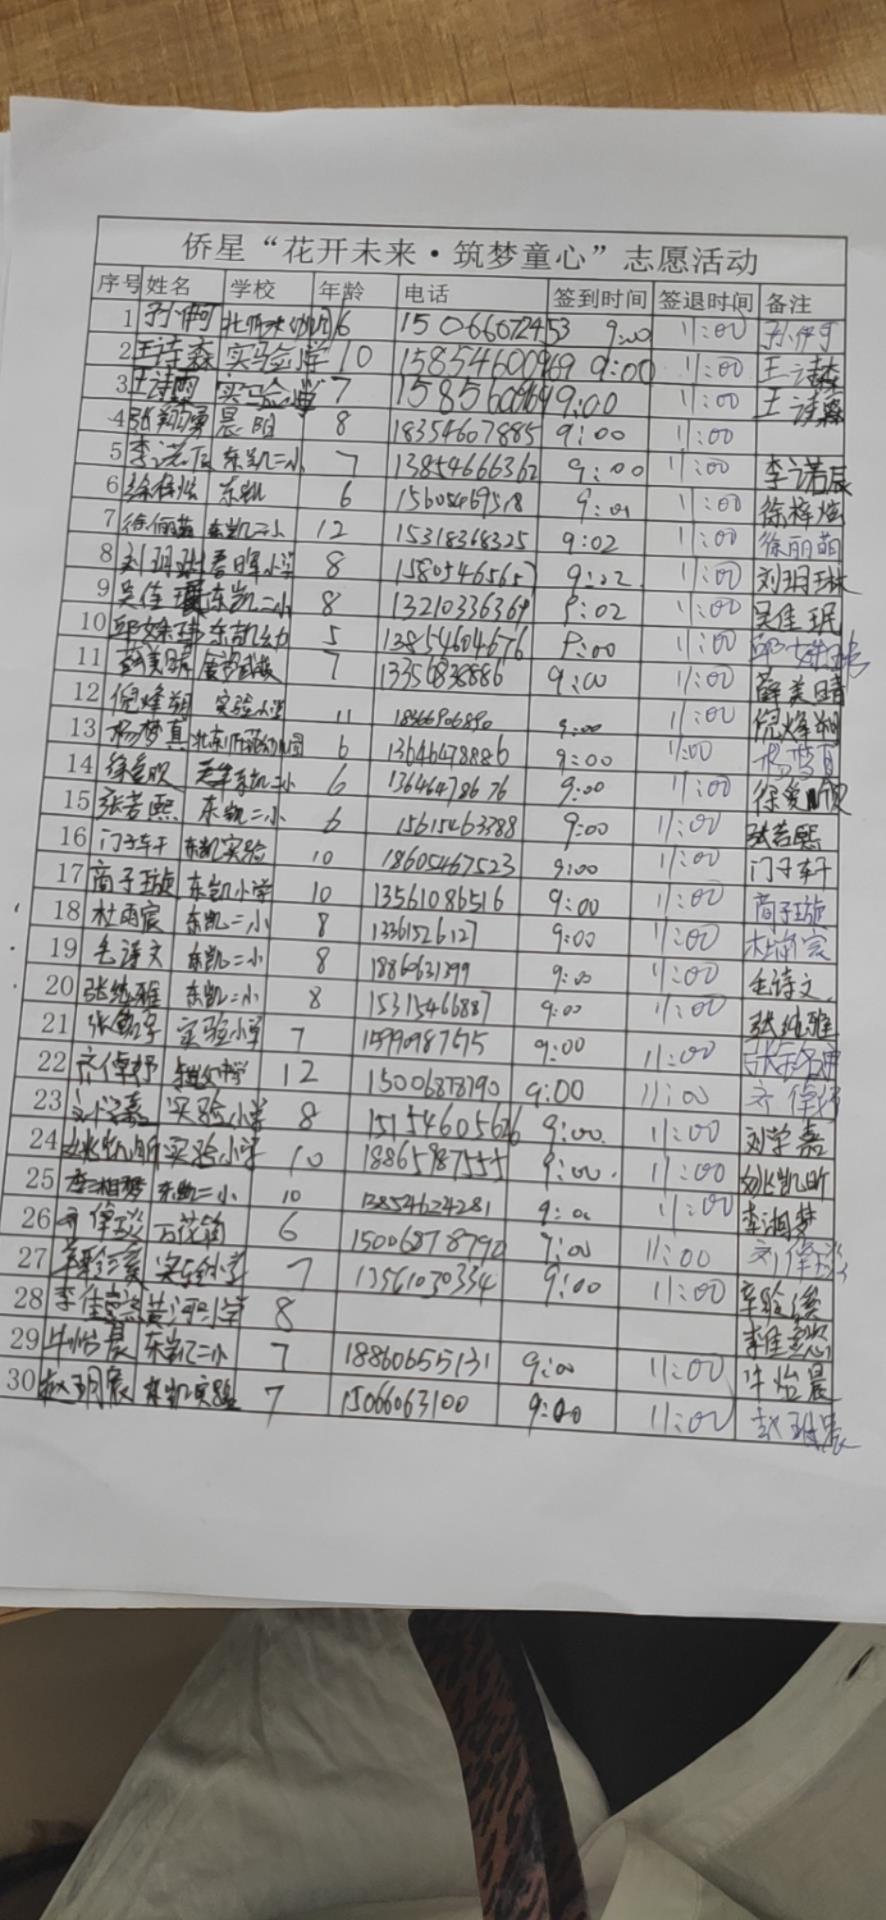 侨星“花开未来·筑梦童心”志愿活动
序号 姓名 学校 年龄 电话 签到时间 签退时间 备注
1 孙伊可 6 15066072453 9:00 11:00 孙伊可
2 王诗森 实验小学 10 15854600969 9:00 11:00 王诗森
3 王诗 实验小学 7 9:00 11:00 王诗
4 张翔勇 晨阳 8 18354607885 9:00 11:00
5 李诺辰 东凯二小 7 13854666362 9:00 11:00 李诺辰
6 徐梓炫 东凯 6 15605469518 9:01 11:00 徐梓炫
7 徐俪萌 东凯二小 12 15318368325 9:02 11:00 徐丽萌
8 刘玥琳 春晖小学 8 15805465657 9:02 11:00 刘玥琳
9 吴佳珉 东凯二小 8 13210336369 9:02 11:00 吴佳珉
10 邱 东凯幼 5 13854604676 9:00 11:00 邱
11 薛美晴 7 13356838886 9:00 11:00 薛美晴
12 倪烽翔 实验小学 11 18366906890 9:00 11:00 倪烽翔
13 杨梦真 北京师范幼儿园 6 13646478886 9:00 11:00 杨梦真
14 徐爱 东凯二小 6 13646478676 9:00 11:00 徐爱
15 张若熙 东凯二小 6 15615463388 9:00 11:00 张若熙
16 门子轩 东凯实验 10 18605467523 9:00 11:00 门子轩
17 商子璇 东凯小学 10 13561086516 9:00 11:00 商子璇
18 杜雨宸 东凯二小 8 13361526127 9:00 11:00 杜雨宸
19 毛诗文 东凯二小 8 9:00 11:00 毛诗文
20 张纯雅 东凯二小 8 15315466887 9:00 11:00 张纯雅
21 张 实验小学 7 15990987575 9:00 11:00 张
22 齐偉妤 中学 12 15006878790 9:00 11:00 齐偉妤
23 刘学嘉 实验小学 8 15154605626 9:00 11:00 刘学嘉
24 姚凯昕 实验小学 10 18865987555 9:00 11:00 姚凯昕
25 李湘梦 东凯二小 10 13854624281 9:00 11:00 李湘梦
26 万花筒 6 15006878790 9:00 11:00
27 辛聆溪 实验小学 7 13561030334 9:00 11:00 辛聆溪
28 李佳 黄河小学 8 李佳
29 牛怡晨 东凯二小 7 18860655131 9:00 11:00 牛怡晨
30 赵玥宸 东凯实验 7 15066063100 9:00 11:00 赵玥宸